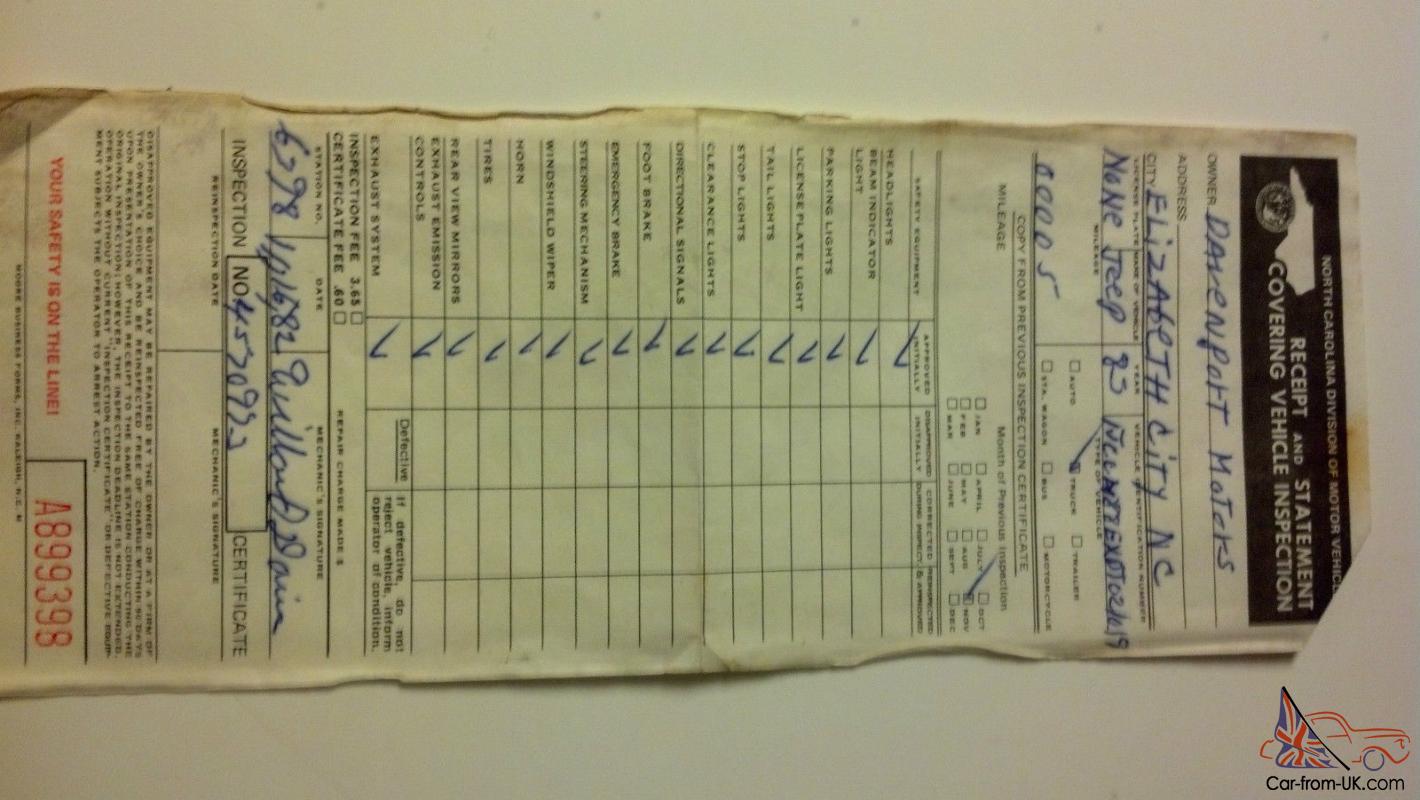 NORTH CAROLINA DIVISION OF MOTOR VEHICLE
RECEIPT AND STATEMENT
COVERING VEHICLE INSPECTION
OWNER DAVENPORT MOTORS
ADDRESS
CITY ELIZABETH CITY NC
LICENSE PLATE MAKE OF VEHICLE YEAR VEHICLE IDENTIFICATION NUMBER
NONE Jeep 83
MILEAGE TYPE OF VEHICLE
00005
AUTO TRUCK TRAILER
STA. WAGON BUS MOTORCYCLE
COPY FROM PREVIOUS INSPECTION CERTIFICATE
MILEAGE Month of Previous Inspection
JAN APRIL JULY OCT
FEB MAY AUG NOV
MAR JUNE SEPT DEC
SAFETY EQUIPMENT APPROVED INITIALLY DISAPPROVED INITIALLY CORRECTED DURING INSPECT. REINSPECTED & APPROVED
HEADLIGHTS
BEAM INDICATOR
LIGHT
PARKING LIGHTS
LICENSE PLATE LIGHT
TAIL LIGHTS
STOP LIGHTS
CLEARANCE LIGHTS
DIRECTIONAL SIGNALS
FOOT BRAKE
EMERGENCY BRAKE
STEERING MECHANISM
WINDSHIELD WIPER
HORN
TIRES
REAR VIEW MIRRORS
EXHAUST EMISSION
CONTROLS
EXHAUST SYSTEM
Defective If defective, do not
reject vehicle, inform
operator of condition.
INSPECTION FEE 3.65
CERTIFICATE FEE .60
REPAIR CHARGE MADE $
STATION NO. DATE MECHANIC'S SIGNATURE
6598
INSPECTION NO. CERTIFICATE
REINSPECTION DATE MECHANIC'S SIGNATURE
DISAPPROVED EQUIPMENT MAY BE REPAIRED BY THE OWNER OR AT A FIRM OF
THE OWNER'S CHOICE AND BE REINSPECTED FREE OF CHARGE WITHIN 90 DAYS
UPON PRESENTATION OF THIS RECEIPT TO THE SAME STATION CONDUCTING THE
ORIGINAL INSPECTION; HOWEVER, THE INSPECTION DEADLINE IS NOT EXTENDED.
OPERATION WITHOUT CURRENT "INSPECTION CERTIFICATE" OR DEFECTIVE EQUIP-
MENT SUBJECTS THE OPERATOR TO ARREST ACTION.
YOUR SAFETY IS ON THE LINE!
A899398
MOORE BUSINESS FORMS, INC. RALEIGH, N.C. M
Car-from-UK.com